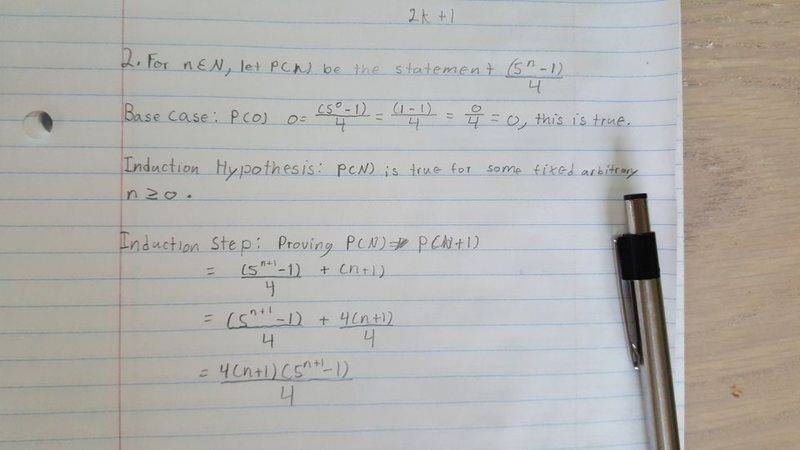 2k +1
2. For n∈N, let P(N) be the statement (5^n - 1)/4
Base Case: P(0) 0 = (5^0 - 1)/4 = (1 - 1)/4 = 0/4 = 0, this is true.
Induction Hypothesis: P(N) is true for some fixed arbitrary
n ≥ 0.
Induction Step: Proving P(N) ⇒ P(N+1)
= (5^{n+1} - 1)/4 + (n+1)
= (5^{n+1} - 1)/4 + 4(n+1)/4
= 4(n+1)(5^{n+1} - 1)/4